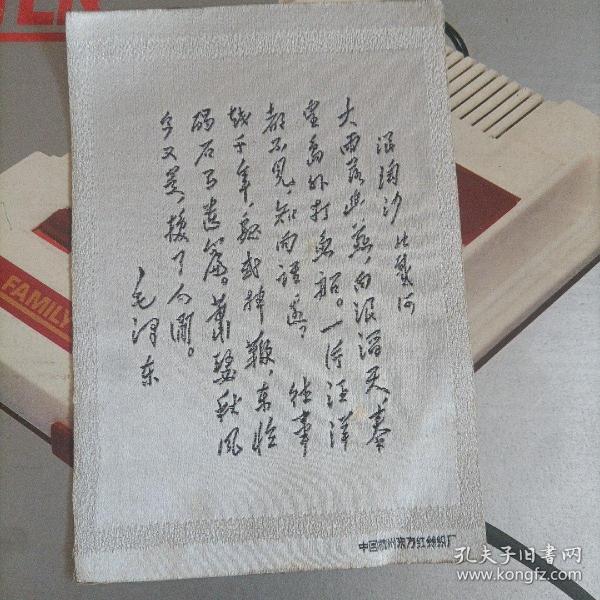 浪淘沙 北戴河
大雨落幽燕,白浪滔天,秦
皇岛外打鱼船。一片汪洋
都不见,知向谁边, 往事
越千年,魏武挥鞭,东临
碣石有遗篇。萧瑟秋风
今又是,换了人间。
毛泽东
中国杭州东方红丝织厂
FAMILY
孔夫子旧书网
www.kongfz.com